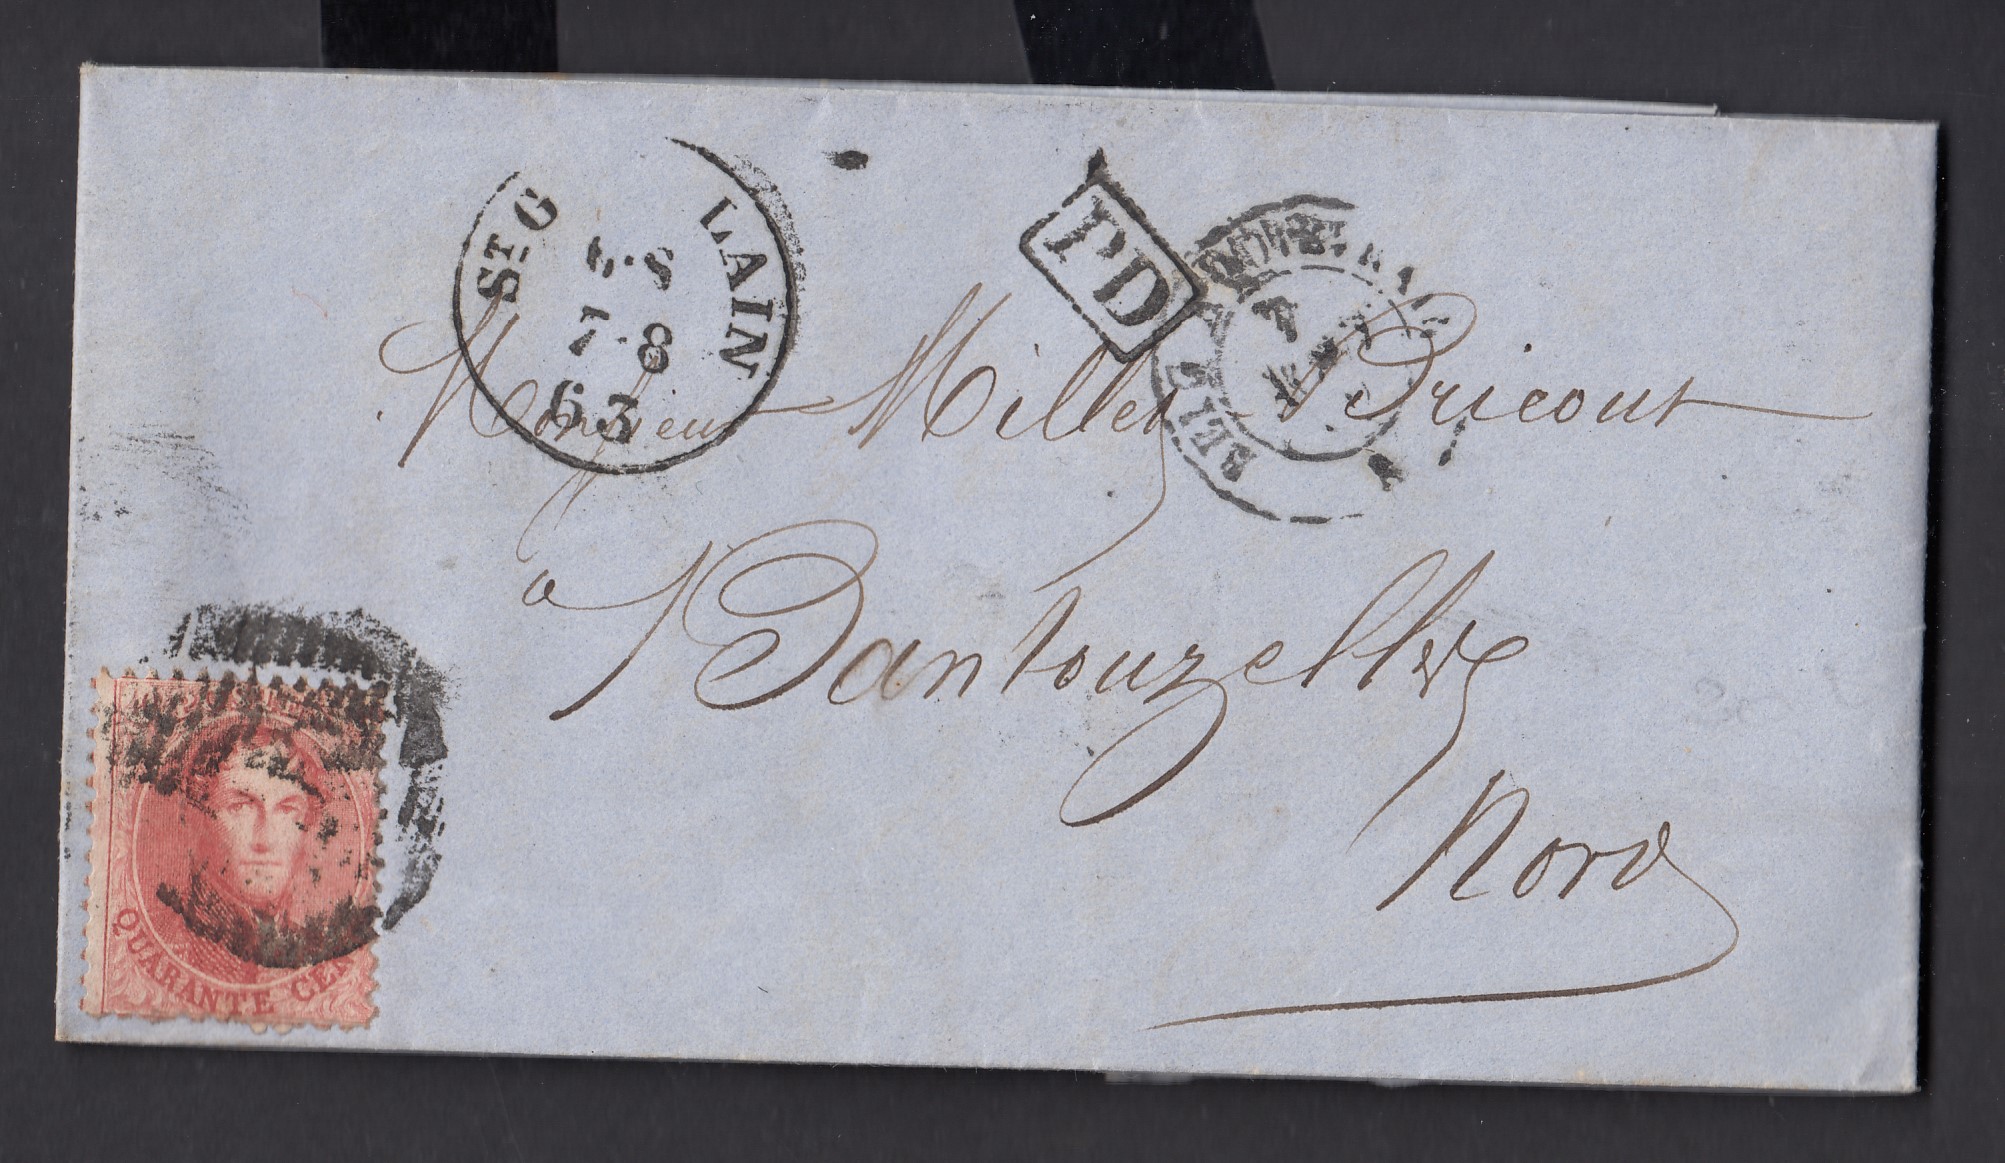 ST G LAIN
7·8
63
PD
BELG.
Monsieur Millet Bricout
a Bantouzelle
Nord
QUARANTE CEN